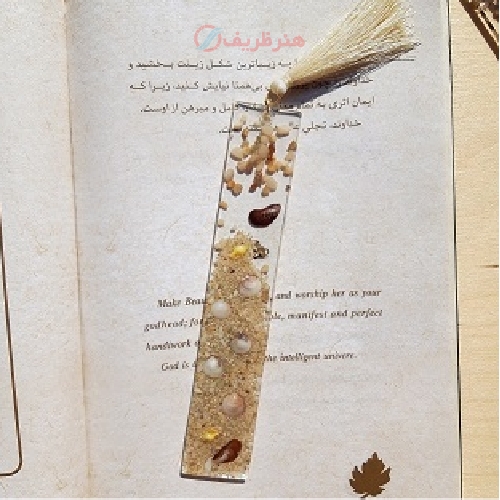 هنر ظریف
به زیباترین شکل زینت بخشید و
بی‌همتا نیایش کنید، زیرا که
ایمان اثری به تما کامل و مبرهن از اوست.
خداوند، تجلی
Make Beau and worship her as your
godhead; for le, manifest and perfect
handwork
God is the intelligent universe.